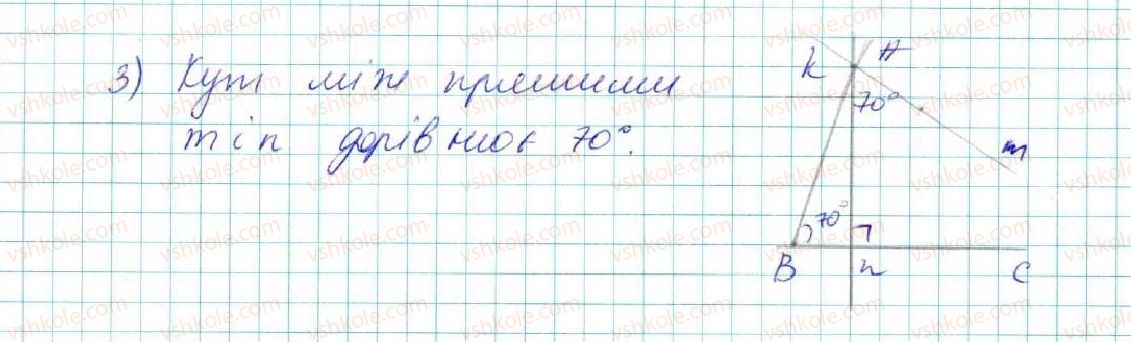 3) Кут між прямими
m і n дорівнює 70°.
K A
70°
m
70°
B n C
vshkole.com